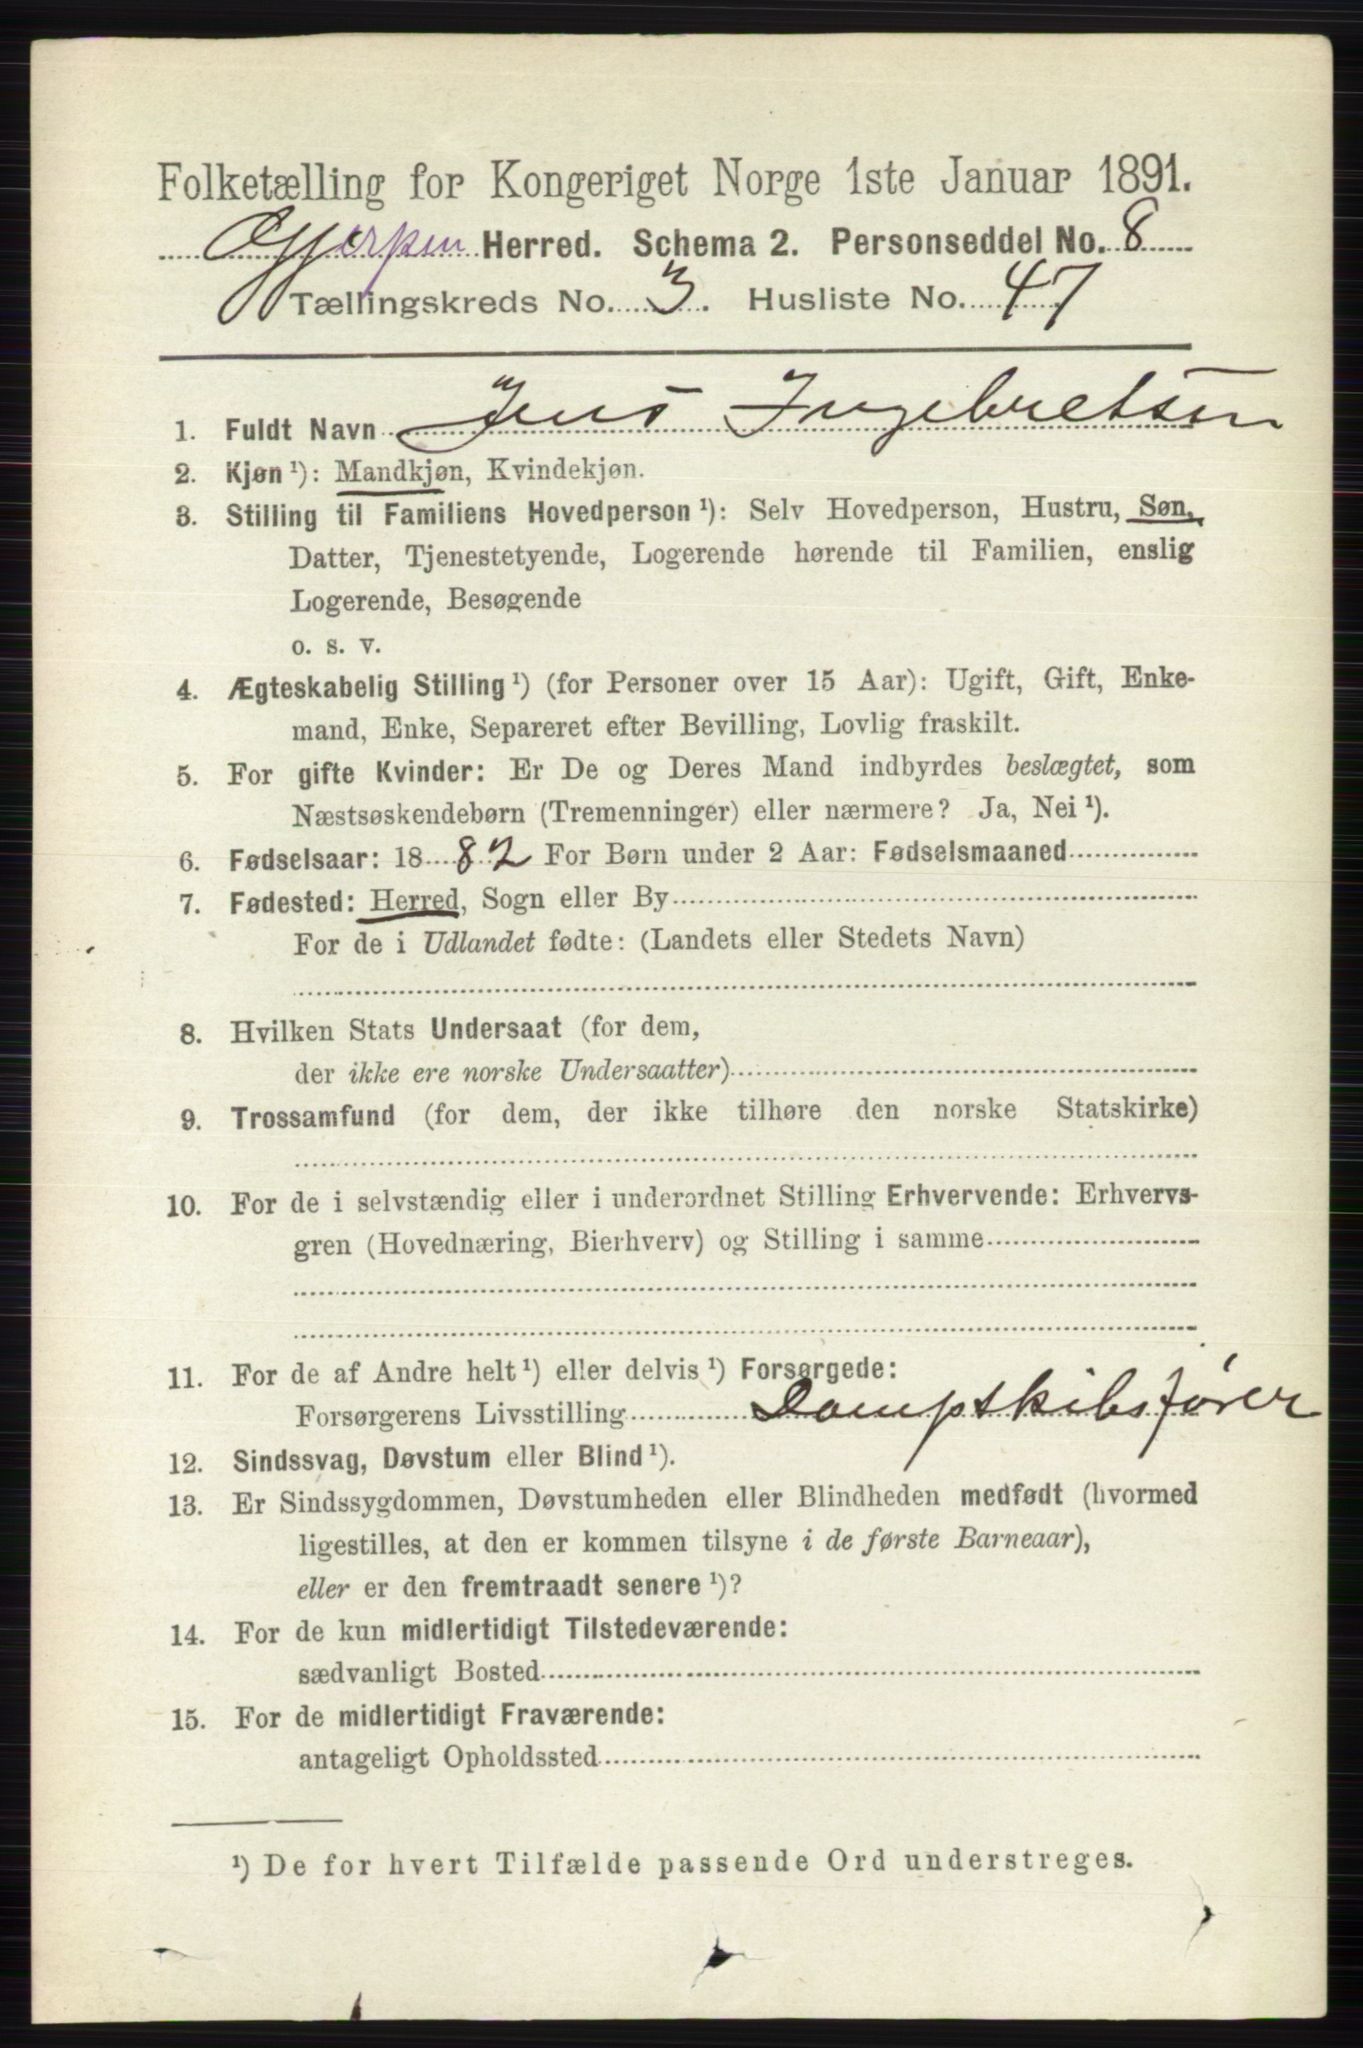 Folketælling for Kongeriget Norge 1ste Januar 1891.
Gjerpen Herred. Schema 2. Personseddel No. 8
Tællingskreds No. 3. Husliste No. 47
1. Fuldt Navn Jens Ingebretsen
2. Kjøn ¹): Mandkjøn, Kvindekjøn.
3. Stilling til Familiens Hovedperson ¹): Selv Hovedperson, Hustru, Søn,
Datter, Tjenestetyende, Logerende hørende til Familien, enslig
Logerende, Besøgende
o. s. v.
4. Ægteskabelig Stilling ¹) (for Personer over 15 Aar): Ugift, Gift, Enke-
mand, Enke, Separeret efter Bevilling, Lovlig fraskilt.
5. For gifte Kvinder: Er De og Deres Mand indbyrdes beslægtet, som
Næstsøskendebørn (Tremenninger) eller nærmere? Ja, Nei ¹).
6. Fødselsaar: 1882 For Børn under 2 Aar: Fødselsmaaned
7. Fødested: Herred, Sogn eller By
For de i Udlandet fødte: (Landets eller Stedets Navn)
8. Hvilken Stats Undersaat (for dem,
der ikke ere norske Undersaatter)
9. Trossamfund (for dem, der ikke tilhøre den norske Statskirke)
10. For de i selvstændig eller i underordnet Stilling Erhvervende: Erhvervs-
gren (Hovednæring, Bierhverv) og Stilling i samme
11. For de af Andre helt ¹) eller delvis ¹) Forsørgede:
Forsørgerens Livsstilling Dampskibsfører
12. Sindssvag, Døvstum eller Blind ¹).
13. Er Sindssygdommen, Døvstumheden eller Blindheden medfødt (hvormed
ligestilles, at den er kommen tilsyne i de første Barneaar),
eller er den fremtraadt senere ¹)?
14. For de kun midlertidigt Tilstedeværende:
sædvanligt Bosted
15. For de midlertidigt Fraværende:
antageligt Opholdssted
¹) De for hvert Tilfælde passende Ord understreges.